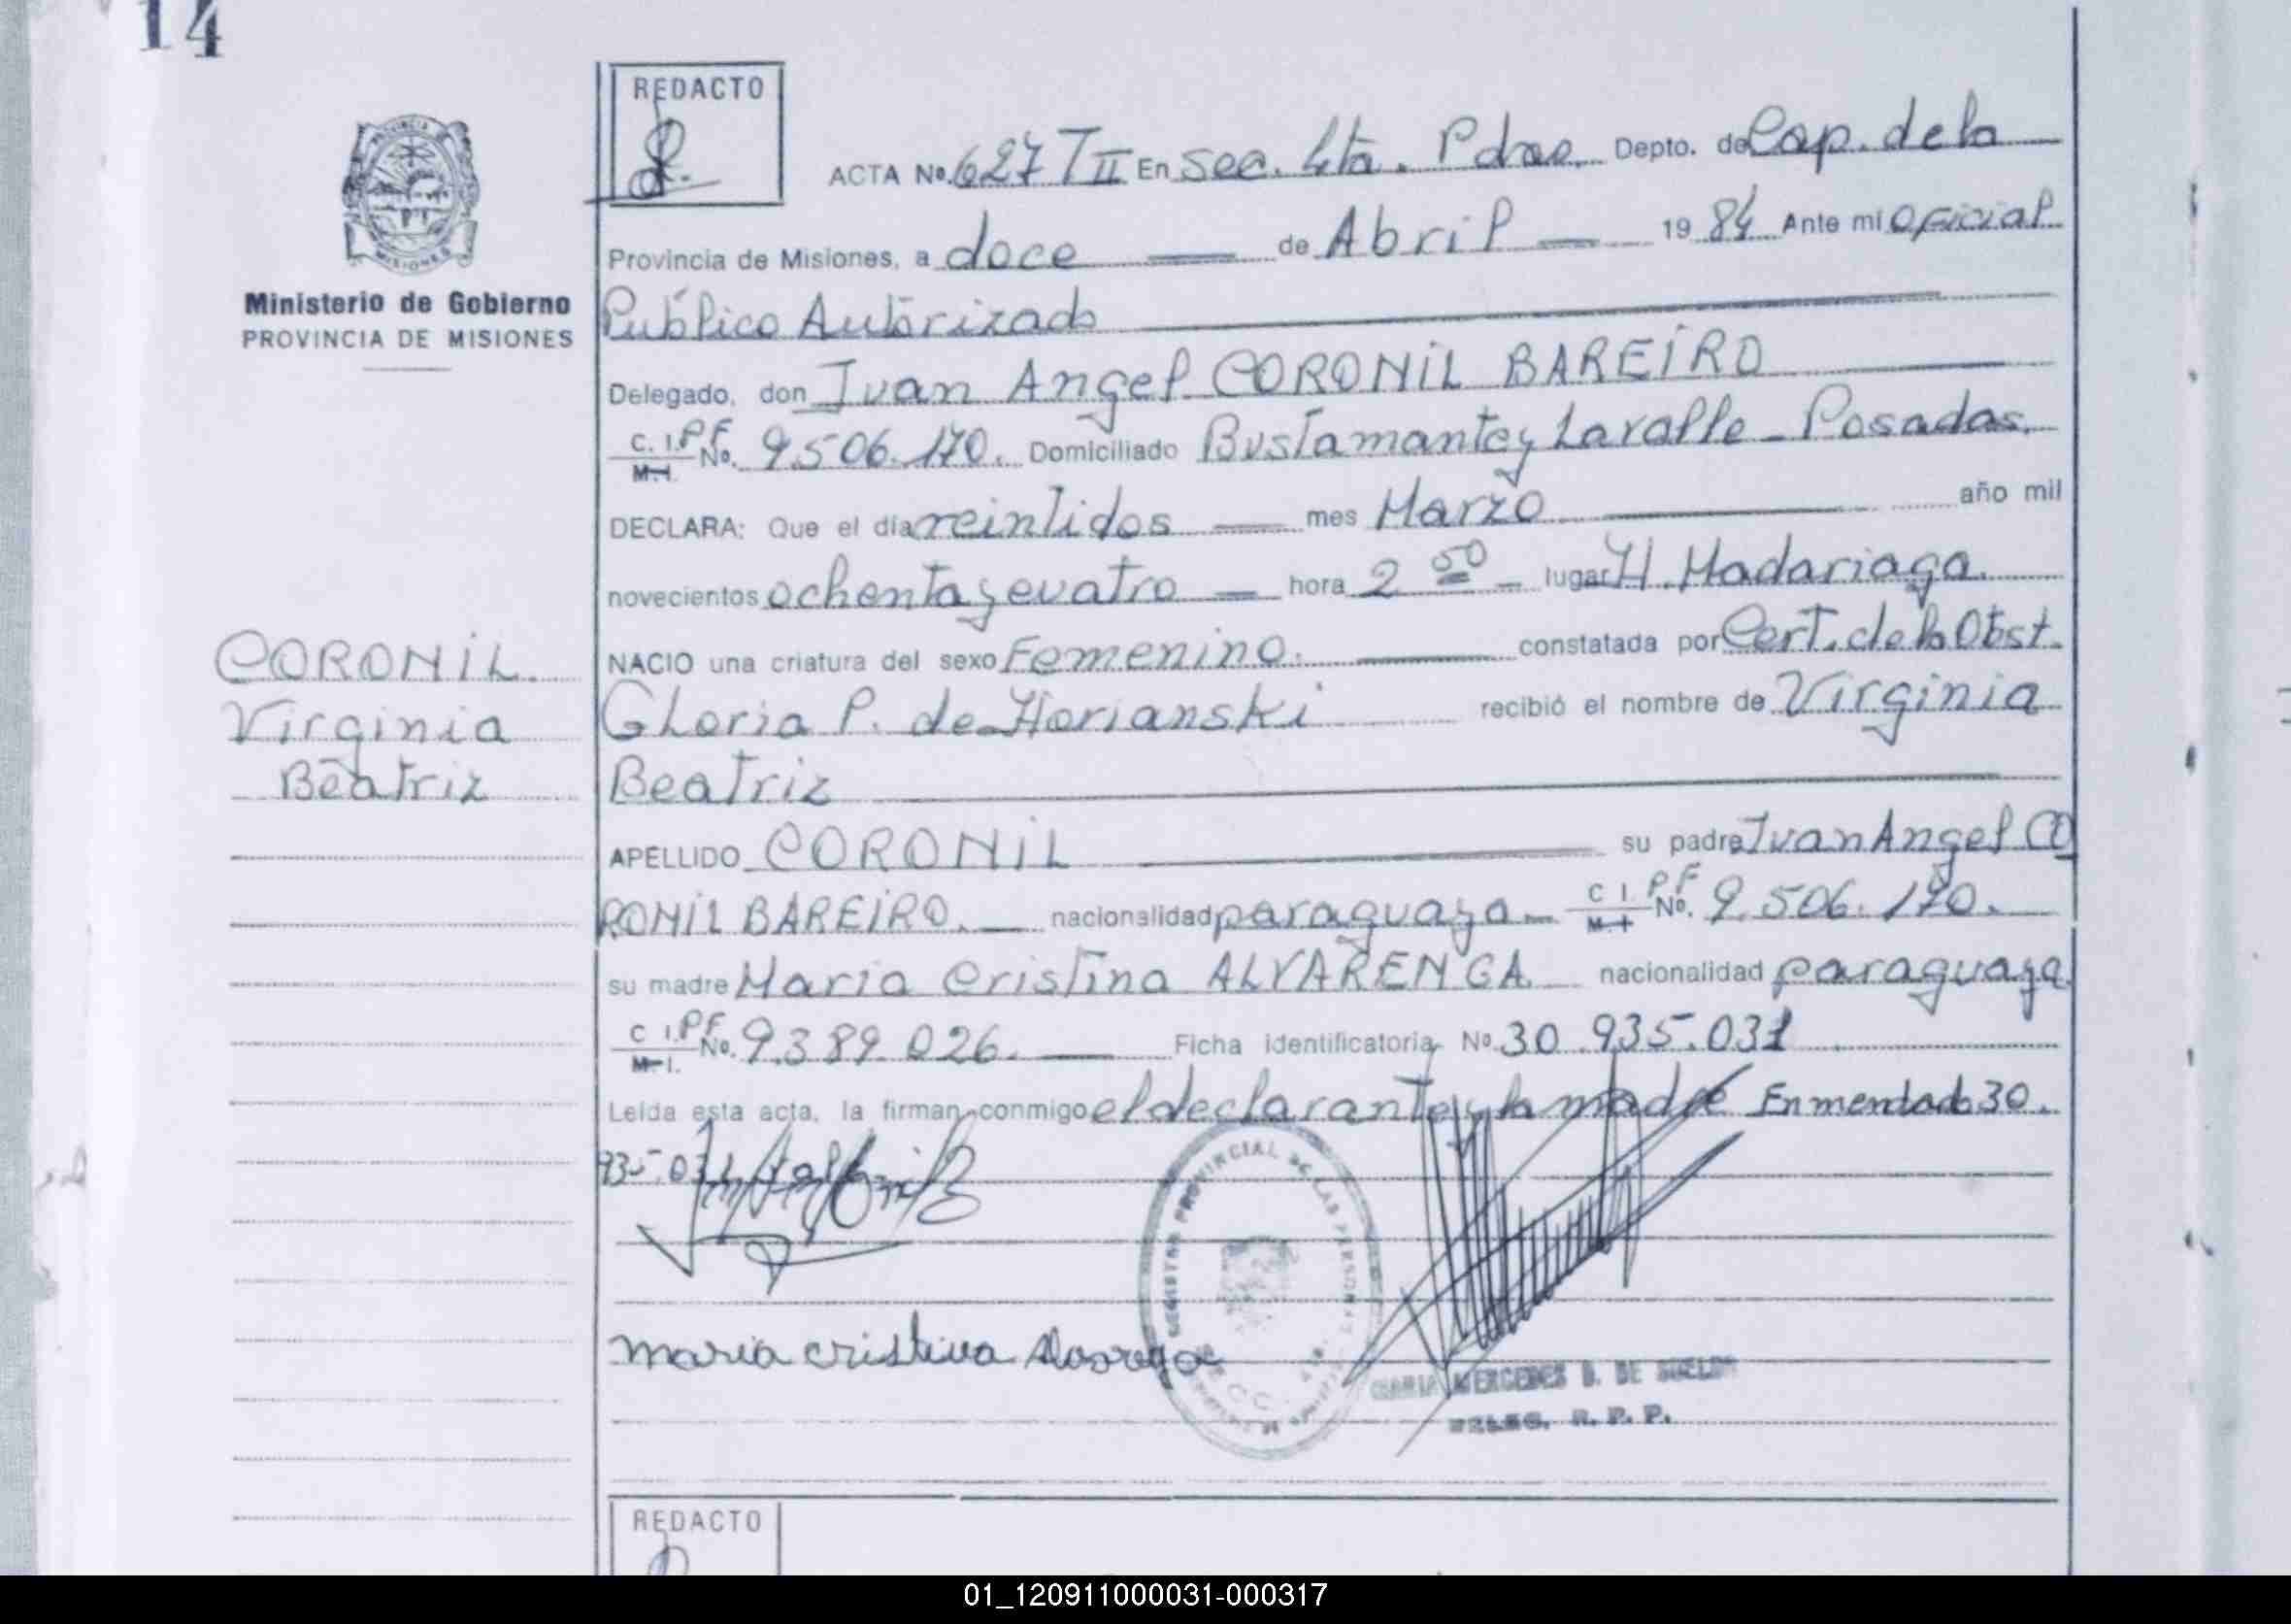 14
REDACTO
ACTA Nº. 627 T II En Sec. 4ta. Pdas. Depto. de Cap. de la
Provincia de Misiones, a doce de Abril 1984 Ante mi Oficial
Ministerio de Gobierno
PROVINCIA DE MISIONES
Público Autorizado
Delegado, don Juan Angel CORONIL BAREIRO
C. I. P F No. 9.506.170. Domiciliado Bustamante y Lavalle - Posadas.
M. I.
DECLARA: Que el día veintidos mes Marzo año mil
novecientos ochenta y cuatro hora 2 50 lugar H. Madariaga.
NACIO una criatura del sexo Femenino. constatada por Cert. de la Obst.
Gloria P. de Horianski recibió el nombre de Virginia
Beatriz
CORONIL.
Virginia
Beatriz
APELLIDO CORONIL su padre Juan Angel CO
RONIL BAREIRO. nacionalidad paraguaya C I. P F No. 9.506.170.
M. I
su madre Maria Cristina ALVARENGA nacionalidad paraguaya
C I. P F No. 9.389.026. Ficha identificatoria Nº 30.935.031
M. I.
Leída esta acta, la firman conmigo el declarante y la madre Enmendado 30.
935.031
REGISTRO PROVINCIAL DE LAS PERSONAS
maria cristina
MARIA MERCEDES B. DE
DELEG. R. P. P.
REDACTO
01_120911000031-000317